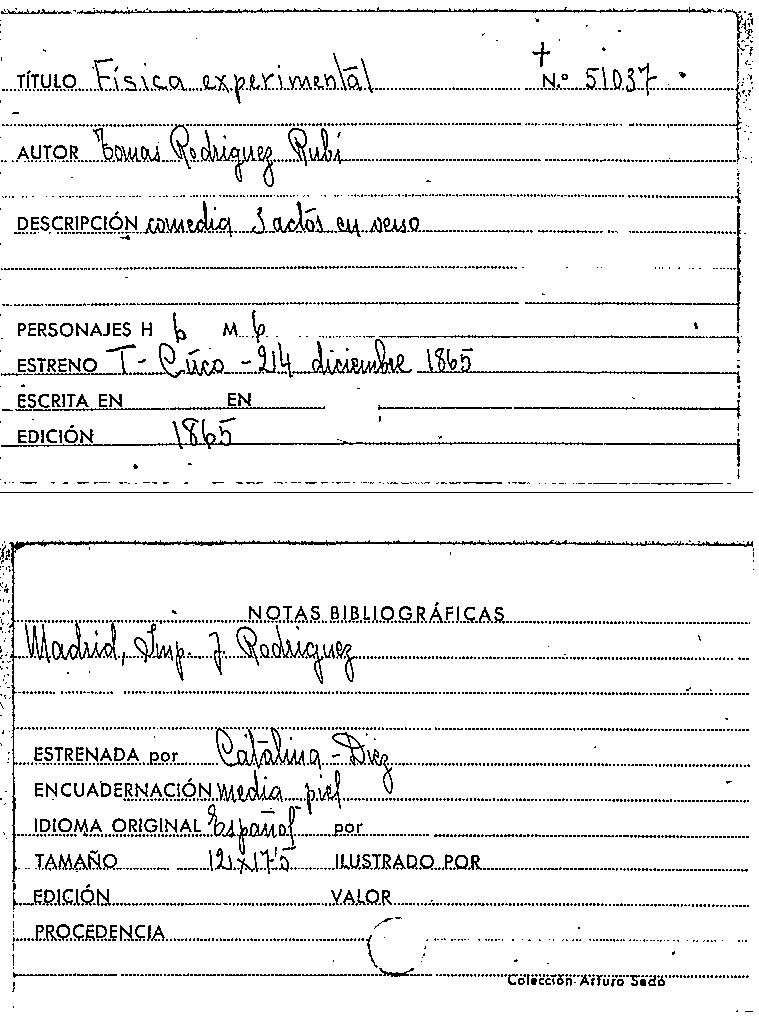 +
TÍTULO Física experimental N.º 51037
AUTOR Tomas Rodriguez Rubí
DESCRIPCIÓN comedia 3 actos en verso
PERSONAJES H 6 M 6
ESTRENO T - Circo - 24 diciembre 1865
ESCRITA EN EN
EDICIÓN 1865
NOTAS BIBLIOGRÁFICAS
Madrid, Imp. J. Rodriguez
ESTRENADA por Catalina - Diez
ENCUADERNACIÓN media piel
IDIOMA ORIGINAL Español por
TAMAÑO 12 x 17'5 ILUSTRADO POR
EDICIÓN VALOR
PROCEDENCIA
Colección Arturo Sedó